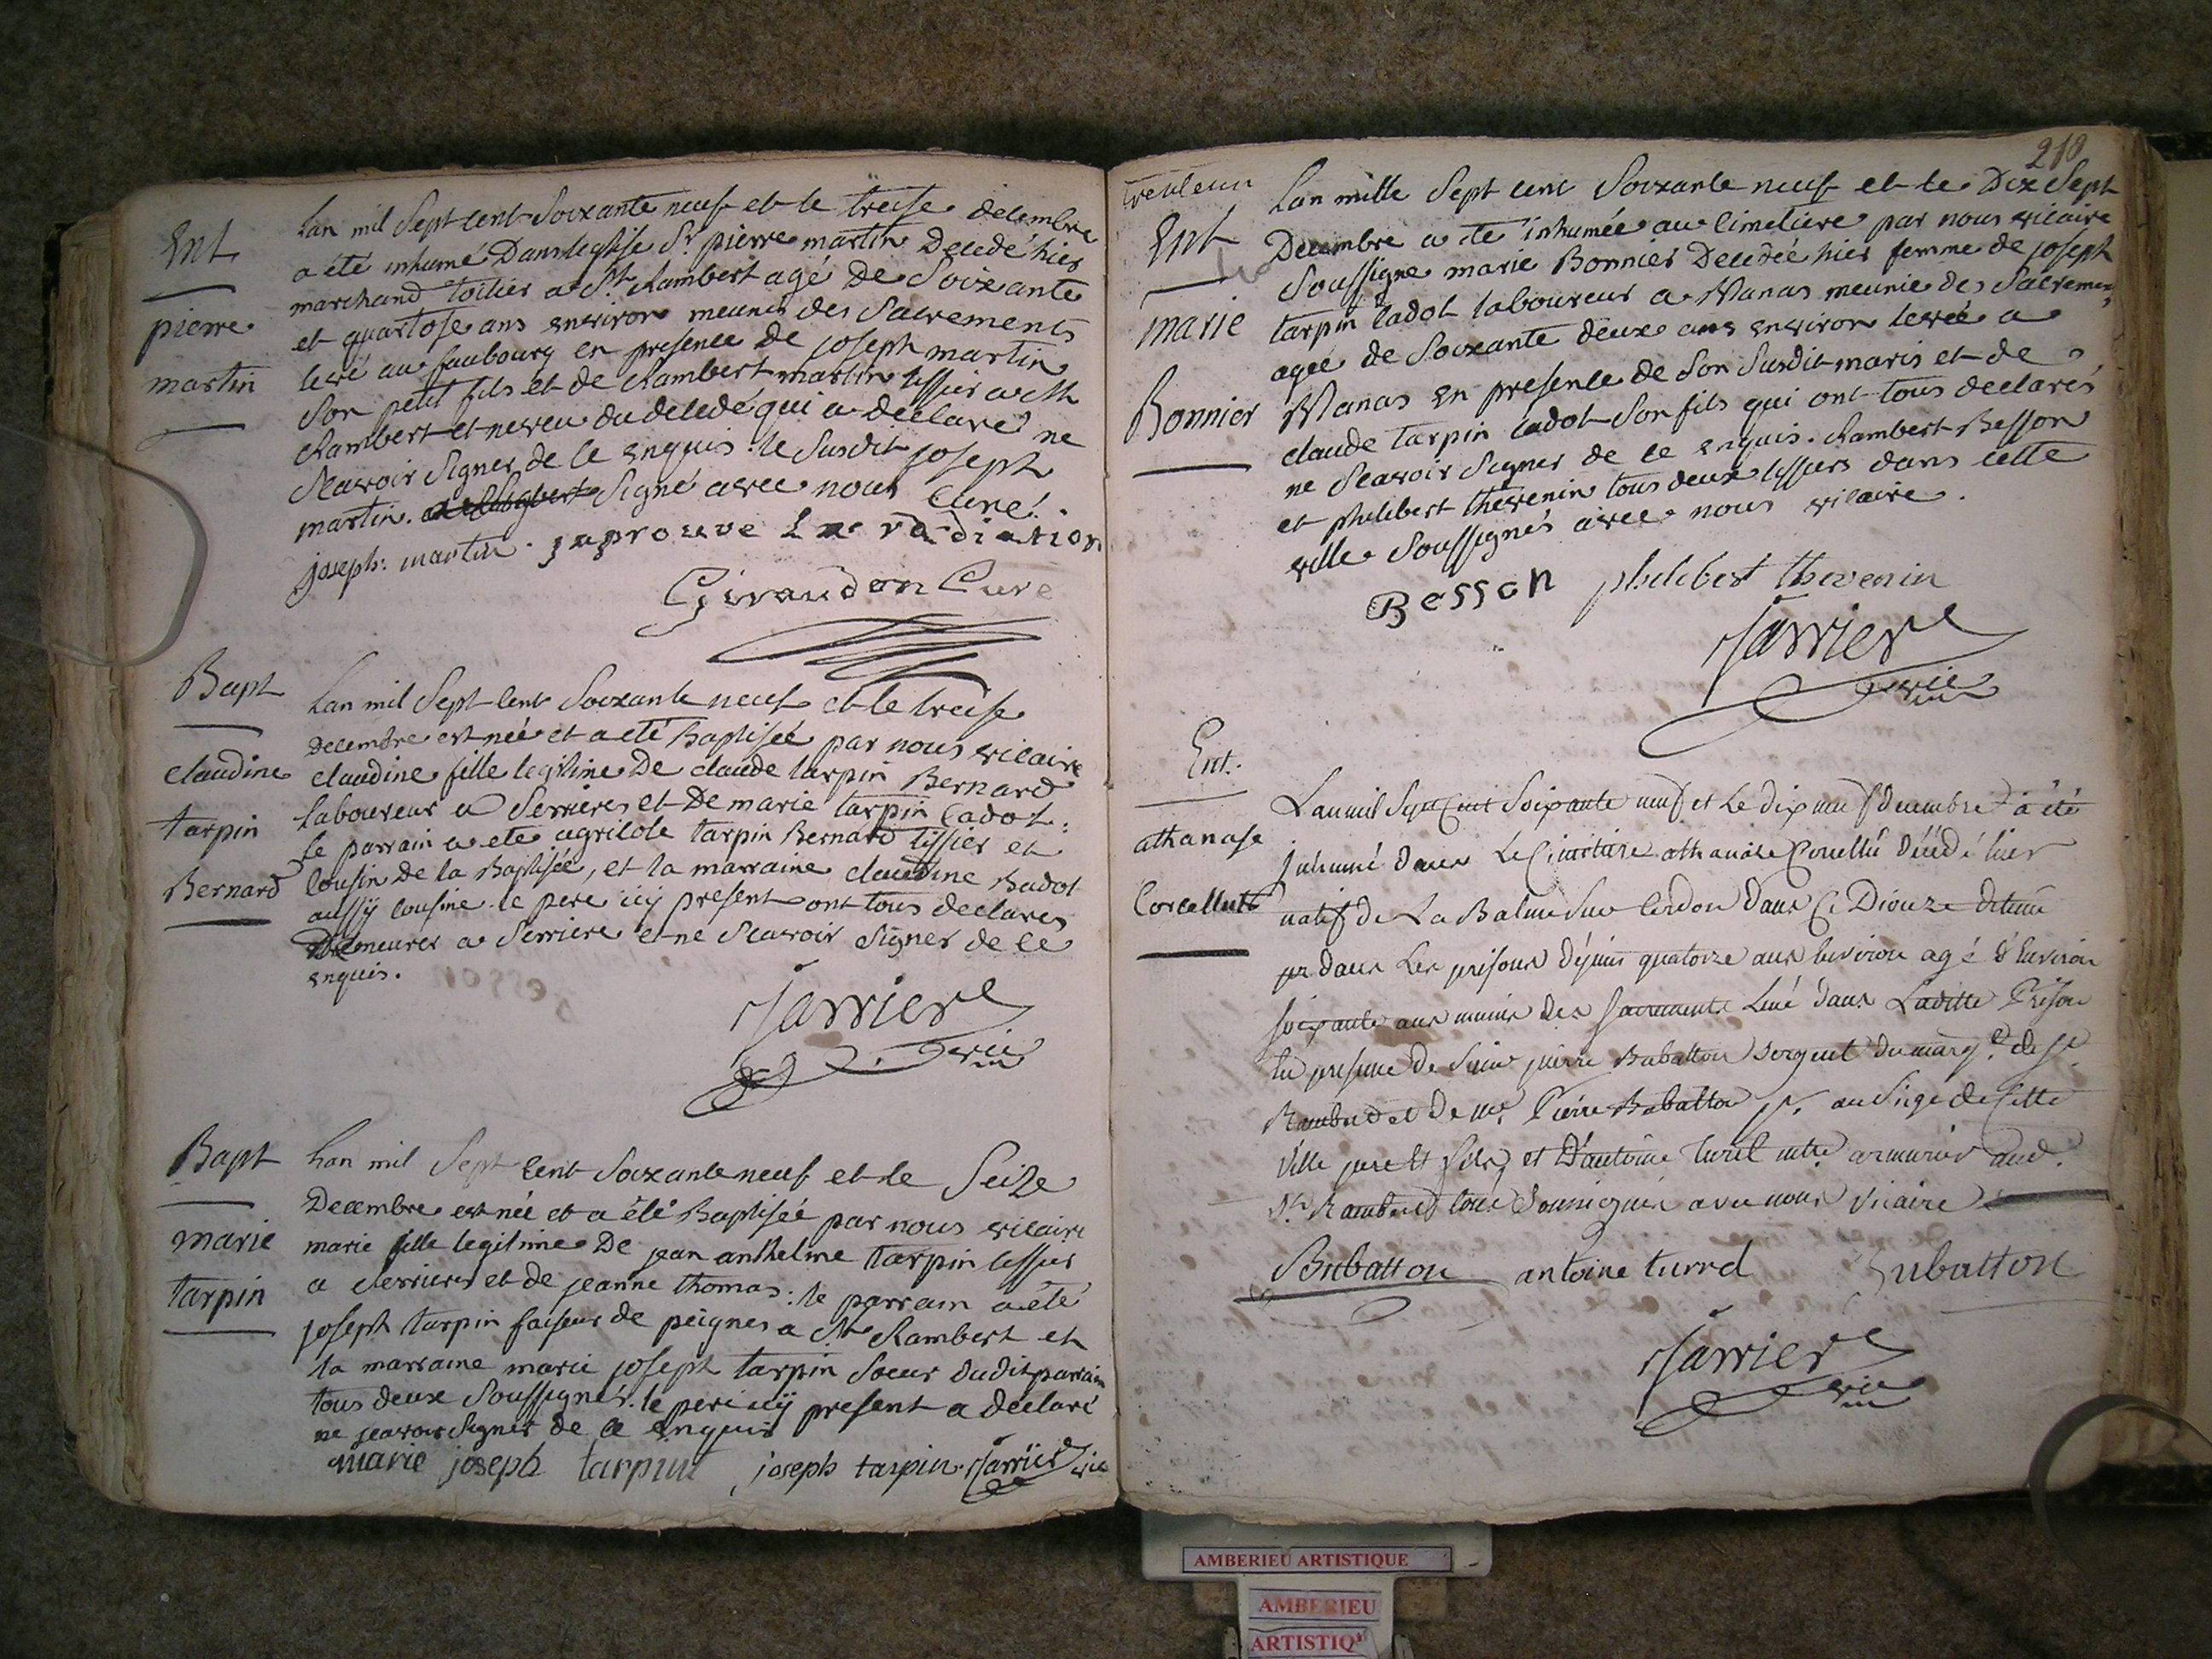 Ent
pierre
martin
Lan mil Sept cent Soixante neuf et le treise decembre
a été inhumé Dans leglise Sr. pierre martin Decedé hier
marchand toilier a St. Rambert agé de Soixante
et quartose ans environ meunis des Sacrements
levé au faubourg en presence de joseph martin
Son petit fils et de Rambert martin tissier a St
Rambert et neveu du decedé qui a declaré ne
Scavoir Signer de ce enquis. le Susdit joseph
martin. Signé avec nous Curé.
joseph. martin. japrouve La radiation
Giraudon Curé
Bapt
claudine
tarpin
Bernard
Lan mil Sept cent Soixante neuf et le treise
decembre est née et a été Baptisée par nous vicaire
claudine fille legitime De claude tarpin Bernard
laboureur a Serrieres et De marie tarpin Cadot:
le parrain a ete agricole tarpin Bernard tissier et
cousin de la Baptisée, et la marraine claudine Badot
aussÿ cousine. le pere icy present ont tous declarés
Demeurer a Serriere et ne Scavoir Signer de ce
enquis.
Jarrier
vic
Bapt
marie
tarpin
Lan mil Sept cent Soixante neuf et le Seize
Decembre est née et a été Baptisée par nous vicaire
marie fille legitime De jean anthelme tarpin tissier
a Serrieres et de jeanne thomas: le parrain a été
joseph tarpin faiseur de peignes a St. Rambert et
la marraine marie joseph tarpin Soeur dudit parrain
tous deux Soussignés. le pere icÿ present a declaré
ne scavoir Signer de ce enquis
marie joseph tarpin joseph tarpin. Jarrier vic
210
Ent
marie
Bonnier
Lan mille Sept cent Soixante neuf et le Dix Sept
Decembre a ete inhumée au Cimetiere par nous vicaire
Soussigne marie Bonnier Decedée hier femme de joseph
tarpin Cadot laboureur a Vanas meunie des Sacremens
agee de Soixante deux ans environ levée a
Vanas en presence de Son Susdit maris et de
claude tarpin Cadot Son fils qui ont tous declarés
ne Scavoir Signer de ce enquis. Rambert Besson
et philibert thevenin tous deux tissiers dans cette
ville Soussignés avec nous vicaire.
Besson philibert thevenin
Jarrier
vic
Ent.
athanase
Corcellut
Lan mil Sept Cent Soixante neuf et Le dix neuf decembre a été
Inhumé dans Le Cimetiere athanase decedé hier
natif de La Balme Sur Cerdon dans Ce Dioceze detenu
dans Les prisons depuis quatorze ans Environ agé d'Environ
soixante ans munis des sacrements Levé dans Laditte Prison
En presence de Sieur pierre Bubatton sergent du marq.t de St
Rambert et De me. Pierre Bubatton pr. au Siege de Cette
Ville pere et fils, et D'antoine Turel mtre armurier aud.
St. Rambert tous Soussignés avec nous Vicaire
Bubatton antoine turrel Bubatton
Jarrier
vic
AMBERIEU ARTISTIQUE
AMBERIEU
ARTISTIQ